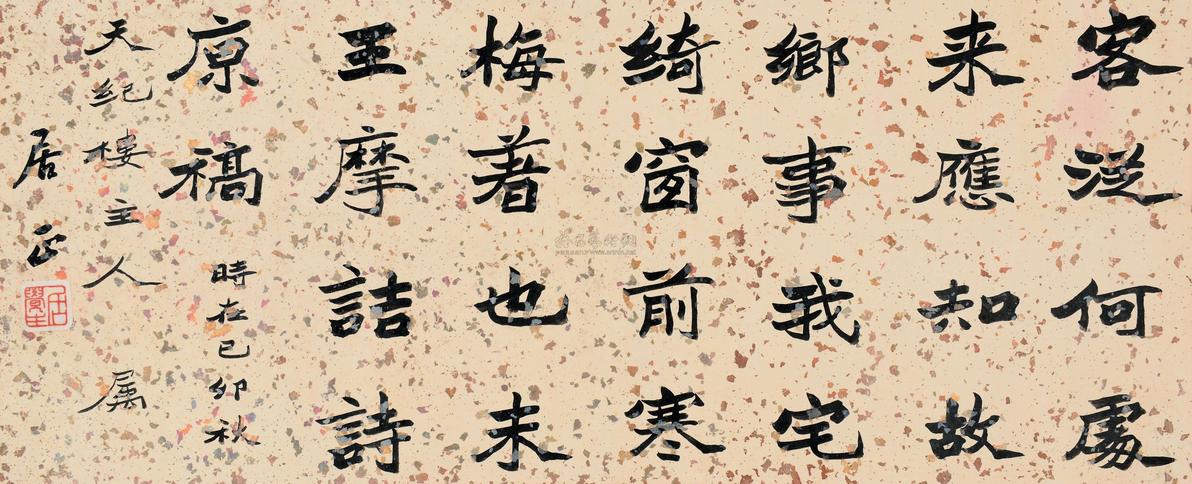 客從何處
来應知故
鄉事我宅
綺窗前寒
梅著也未
王摩詰詩
原稿 時在己卯秋
天紀樓主人 属
居正
居覺生